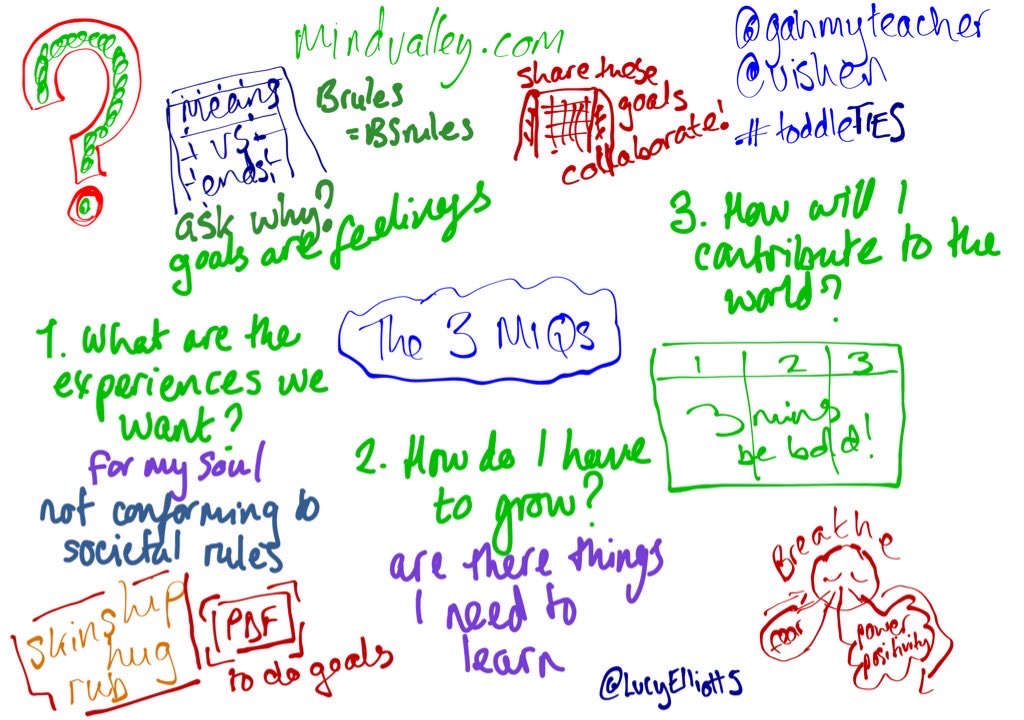 mindvalley.com
@gahmyteacher
@vishen
#toddleTIES
means
vs.
ends!
Brules
= BSrules
share these
goals
collaborate!
ask why?
goals are feelings
3. How will I
contribute to the
world?
The 3 MIQs
1. What are the
experiences we
want?
for my soul
not conforming to
societal rules
1 2 3
3 mins
be bold!
2. How do I have
to grow?
are there things
I need to
learn
Breathe
fear
power
positivity
skinship
hug
rub
PDF
to do goals
@LucyElliott5